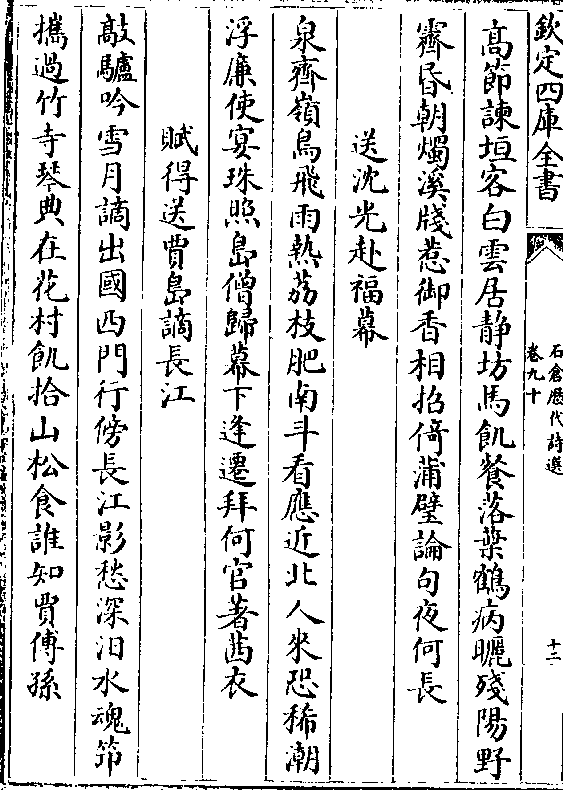 欽定四庫全書
石倉歷代詩選
卷九十
十二
高節諫垣客白雲居靜坊馬飢餐落葉鶴病曬殘陽野
霽昏朝燭溪牋惹御香相招倚蒲壁論句夜何長
送沈光赴福幕
泉齊嶺鳥飛雨熱荔枝肥南斗看應近北人來恐稀潮
浮廉使宴珠照島僧歸幕下逢遷拜何官著茜衣
賦得送賈島謫長江
敲驢吟雪月謫出國西門行傍長江影愁深汨水魂笻
攜過竹寺琴典在花村飢拾山松食誰知賈傅孫